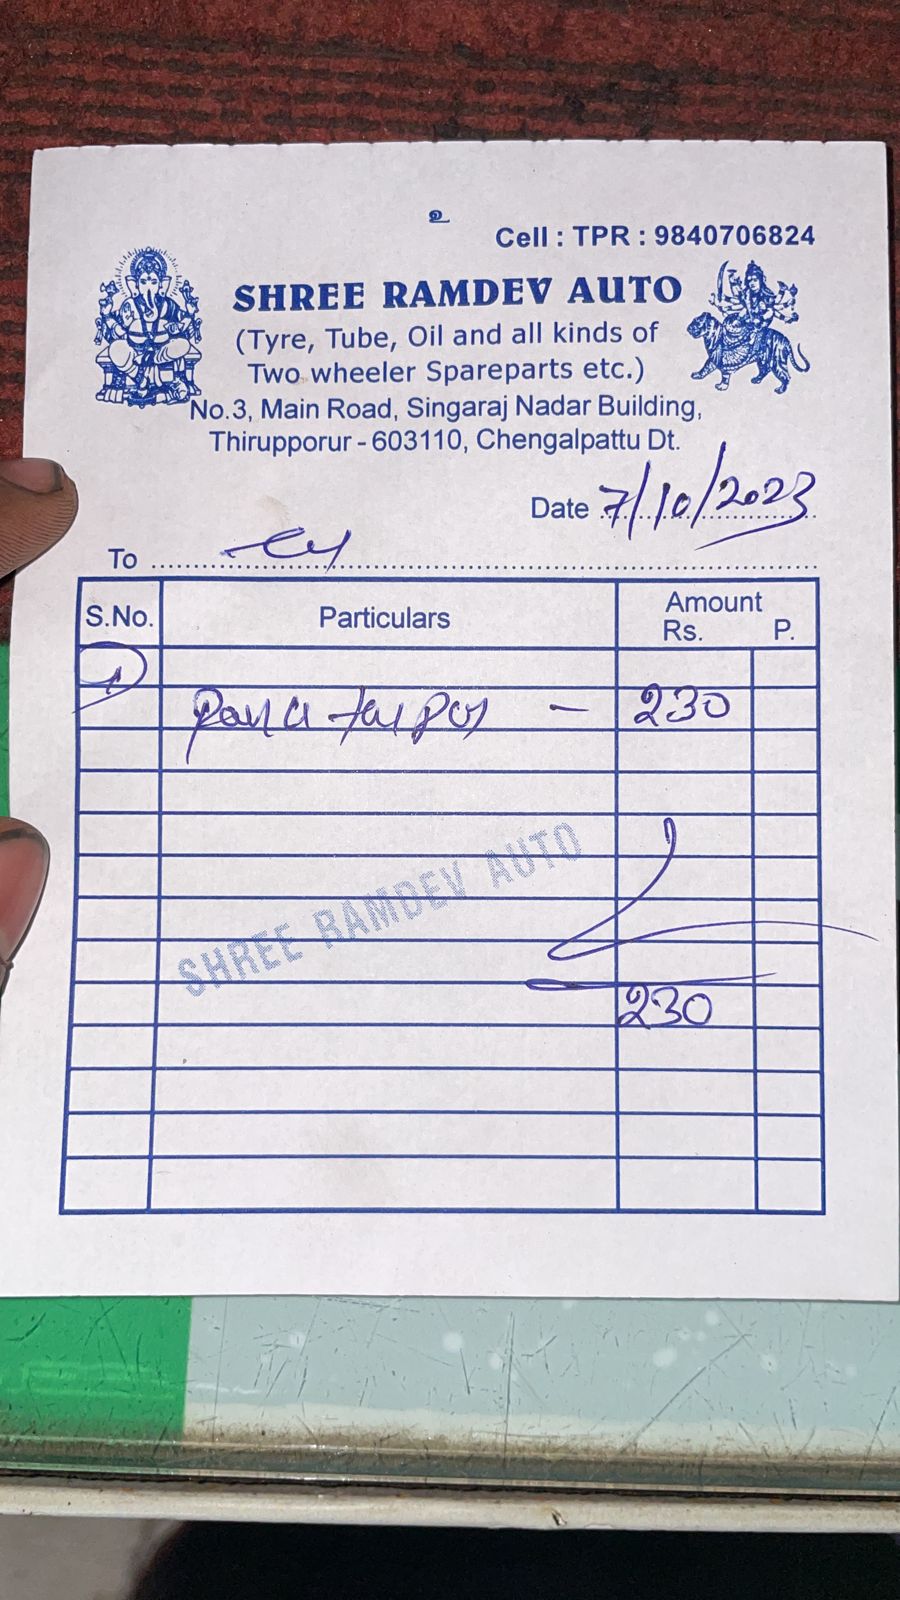 உ
Cell : TPR : 9840706824
SHREE RAMDEV AUTO
(Tyre, Tube, Oil and all kinds of
Two wheeler Spareparts etc.)
No.3, Main Road, Singaraj Nadar Building,
Thirupporur - 603110, Chengalpattu Dt.
Date 7/10/2023
To
S.No. Particulars Amount
Rs. P.
1
- 230
SHREE RAMDEV AUTO
230